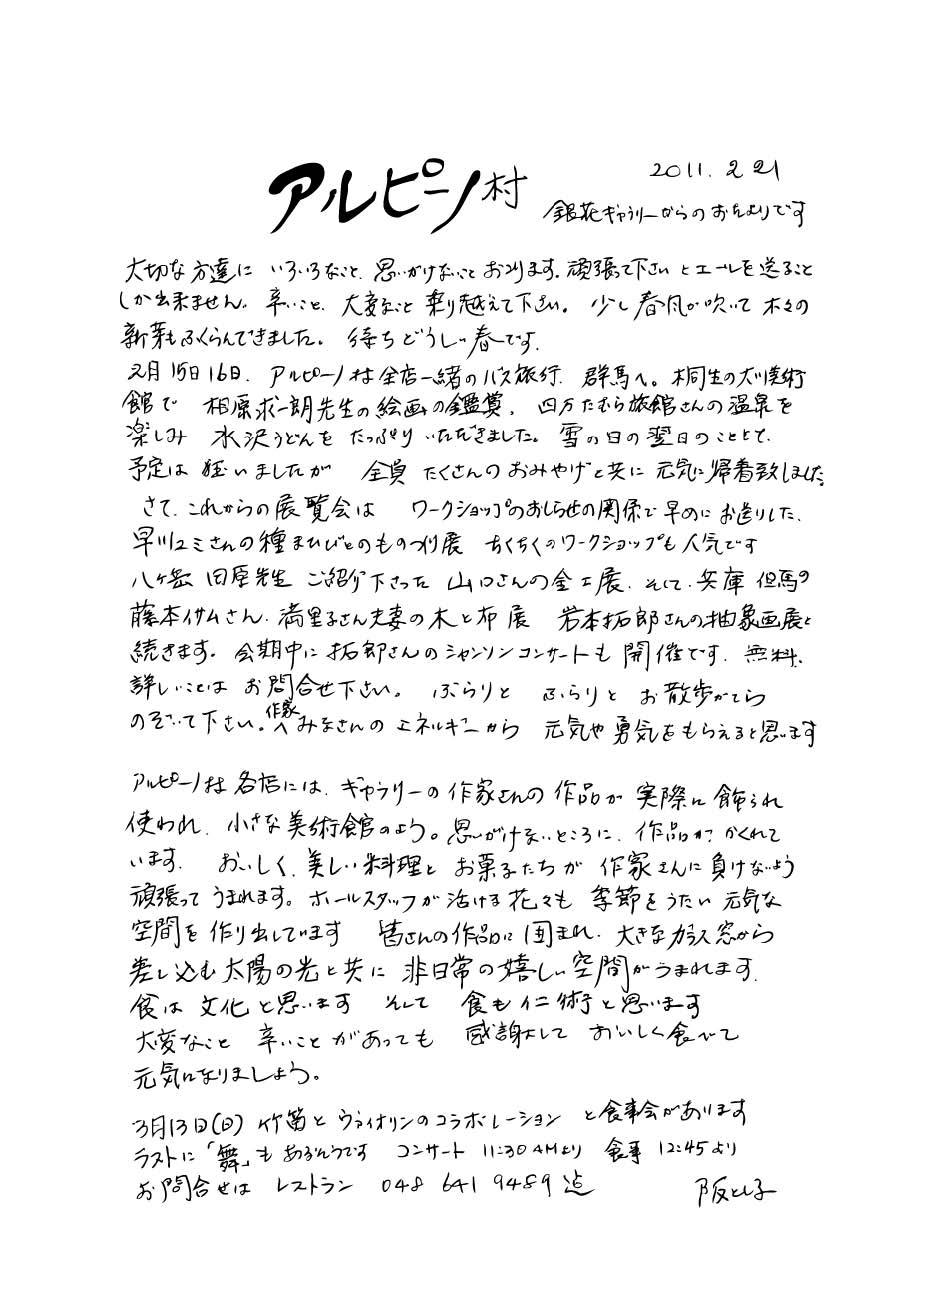 アルピーノ村
2011. 2 21
銀花ギャラリーからのおたよりです
大切な方達に いろいろなこと、思いがけないこと おこります。頑張って下さい とエールを送ること
しか出来ません。辛いこと、大変なこと 乗り越えて下さい。 少し春風が吹いて 木々の
新芽もふくらんできました。 待ちどうしい春です。
2月15日16日、アルピーノ村全店一緒のバス旅行、群馬へ。桐生の大川美術
館で 相原求一朗先生の絵画の鑑賞、四万たむら旅館さんの温泉を
楽しみ 水沢うどんを たっぷり いただきました。雪の日の翌日のこととて、
予定は 狂いましたが 全員 たくさんのおみやげと共に 元気に帰着致しました。
さて、これからの展覧会は ワークショップのおしらせの関係で早めにお送りした、
早川ユミさんの種まきびとのものづくり展 ちくちくのワークショップも人気です
八ヶ岳 田原先生 ご紹介下さった 山口さんの金工展、そして、兵庫 但馬の
藤本イサムさん、満里子さん夫妻の木と布展 岩本拓郎さんの抽象画展と
続きます。会期中に拓郎さんのシャンソンコンサートも開催です、無料、
詳しいことは お問合せ下さい。 ぶらりと ふらりと お散歩がてら
のぞいて下さい。作家みなさんのエネルギーから 元気や勇気をもらえると思います
アルピーノ村各店には、ギャラリーの作家さんの作品が 実際に飾られ
使われ、小さな美術館のよう。思いがけないところに、作品がかくれて
います、 おいしく、美しい料理と お菓子たちが 作家さんに負けないよう
頑張って うまれます。ホールスタッフが活ける花々も 季節をうたい元気な
空間を作り出しています 皆さんの作品に囲まれ、大きなガラス窓から
差し込む太陽の光と共に 非日常の嬉しい空間がうまれます。
食は文化と思います そして 食も仁術と思います
大変なこと 辛いことがあっても 感謝して おいしく食べて
元気になりましょう。
3月13日(日) 竹笛とヴァイオリンのコラボレーション と食事会があります
ラストに「舞」もあるそうです コンサート 11:30AMより 食事 12:45より
お問合せは レストラン 048 641 9489 迄
阪とし子